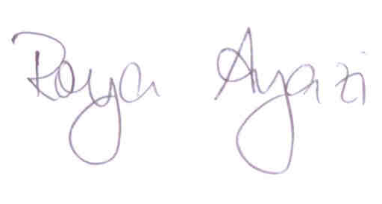 Roya Ayazi